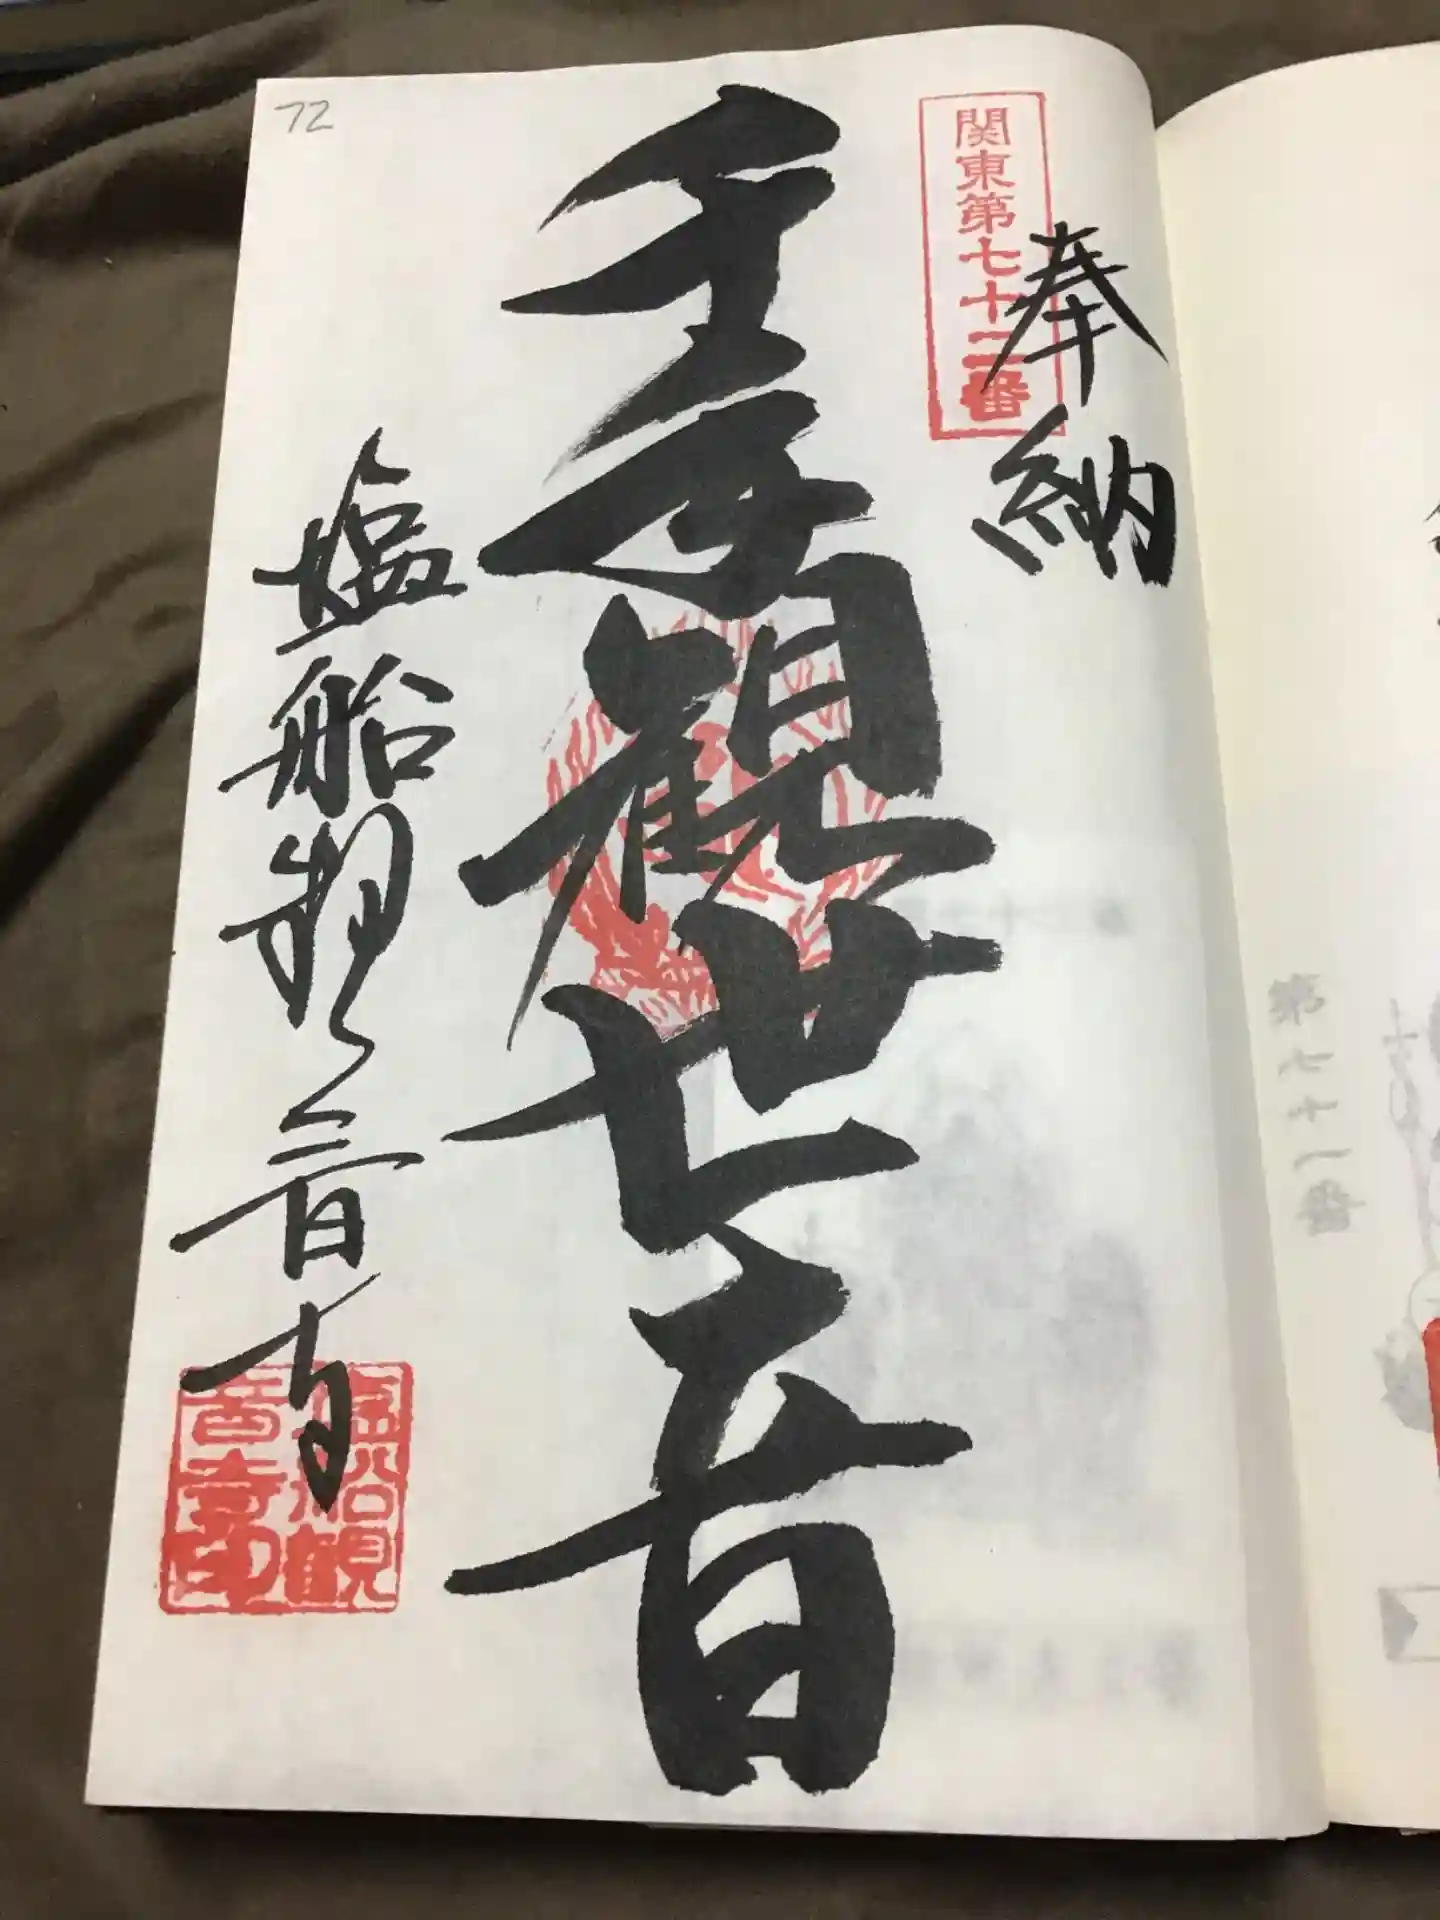 72
関東第七十二番
奉納
千手観世音
塩船観音寺
塩船観
音寺印
第七十一番